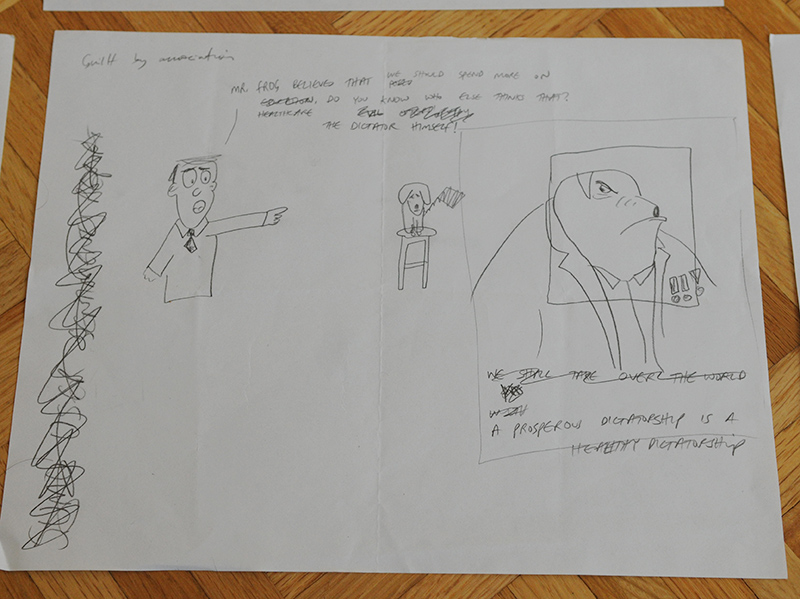 Guilt by association
MR FROG BELIEVED THAT WE SHOULD SPEND MORE ON
EDUCATION. DO YOU KNOW WHO ELSE THINKS THAT?
HEALTHCARE EVIL
THE DICTATOR HIMSELF!
WE SHALL TAKE OVER THE WORLD
WITH
A PROSPEROUS DICTATORSHIP IS A
HEALTHY DICTATORSHIP